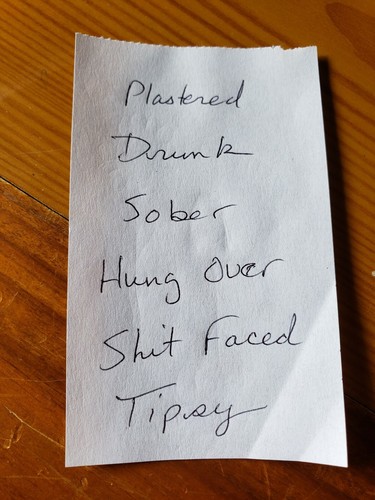 Plastered
Drunk
Sober
Hung Over
Shit Faced
Tipsy